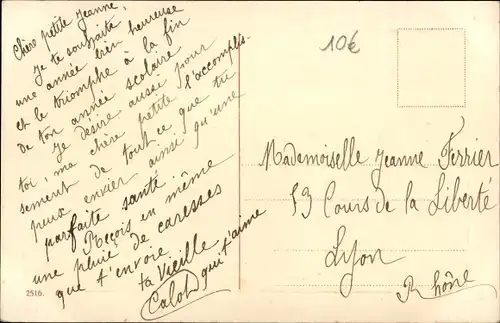 Chère petite Jeanne,
Je te souhaite
une année très heureuse
et le triomphe à la fin
de ton année scolaire
Je désire aussi pour
toi, ma chère petite l'accomplis-
sement de tout ce que tu
peux envier ainsi qu'une
parfaite santé
Reçois en même
une pluie de caresses
que t'envoie
ta Vieille
qui t'aime
2516.
10€
Mademoiselle Jeanne Ferrier
53 Cours de la Liberté
Lyon
Rhône